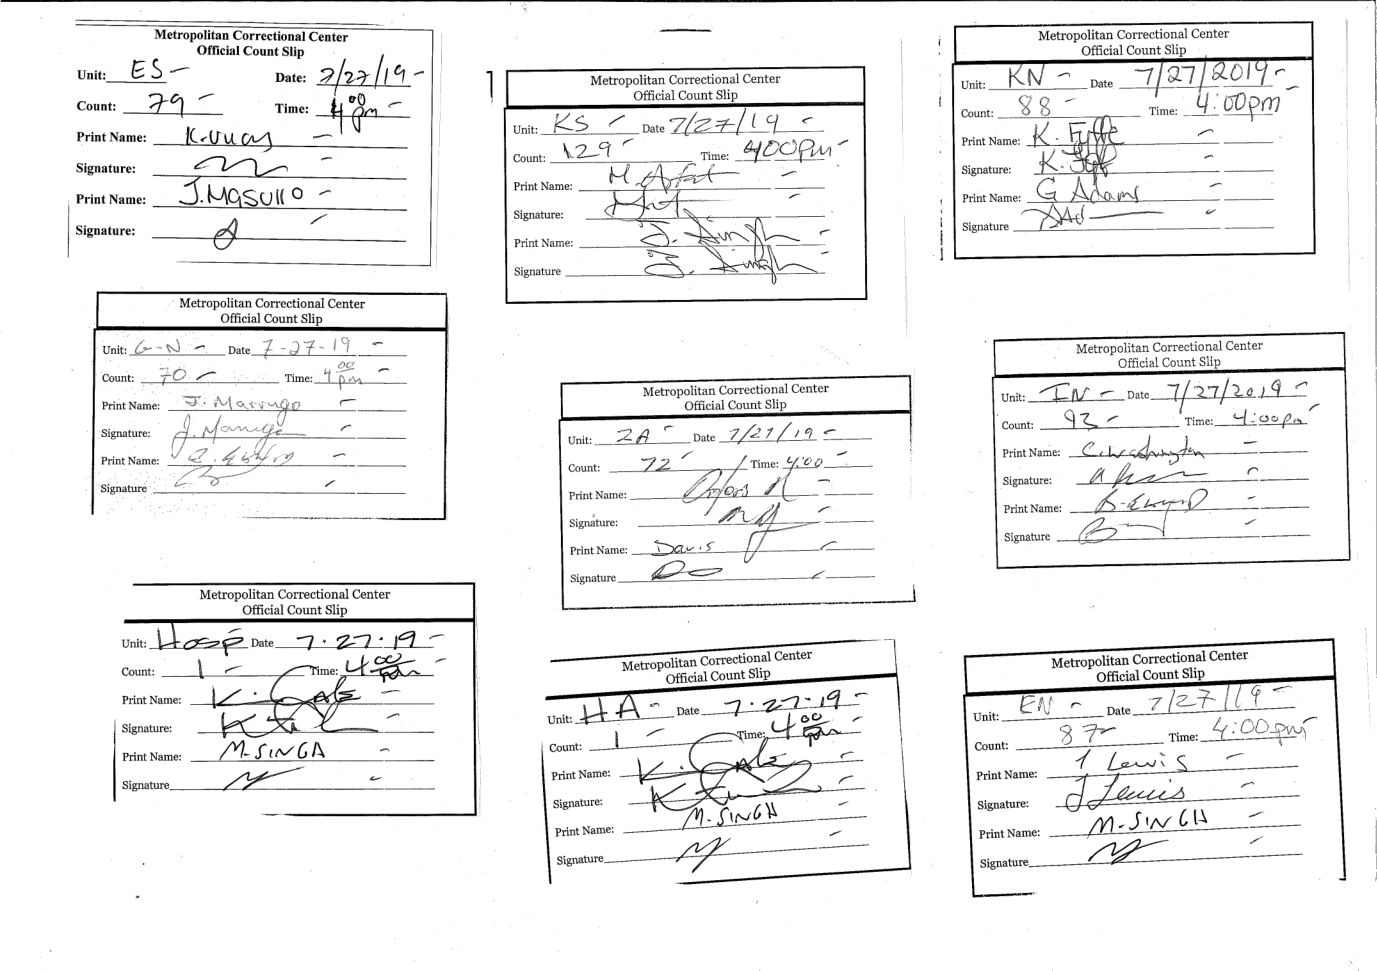 Metropolitan Correctional Center
Official Count Slip
Unit: ES
Date: 7/27/19
Count: 79
Time: 4 00 pm
Print Name:
Signature:
Print Name: J. MASULLO
Signature:
Metropolitan Correctional Center
Official Count Slip
Unit: G-N Date 7-27-19
Count: 70 Time: 4 00 pm
Print Name: J. Marrugo
Signature: J. Marrugo
Print Name:
Signature
Metropolitan Correctional Center
Official Count Slip
Unit: Hosp Date 7.27.19
Count: 1 Time: 4 00 pm
Print Name: K.
Signature:
Print Name: M. SINGH
Signature
Metropolitan Correctional Center
Official Count Slip
Unit: KS Date 7/27/19
Count: 129 Time: 400pm
Print Name: M.
Signature:
Print Name: J. Singh
Signature J. Singh
Metropolitan Correctional Center
Official Count Slip
Unit: ZA Date 7/27/19
Count: 72 Time: 4:00
Print Name:
Signature:
Print Name: Davis
Signature
Metropolitan Correctional Center
Official Count Slip
Unit: HA Date 7.27.19
Count: 1 Time: 4 00 pm
Print Name: K.
Signature:
Print Name: M. SINGH
Signature
Metropolitan Correctional Center
Official Count Slip
Unit: KN Date 7/27/2019
Count: 88 Time: 4:00pm
Print Name: K.
Signature: K.
Print Name: G Adams
Signature
Metropolitan Correctional Center
Official Count Slip
Unit: IN Date 7/27/2019
Count: 93 Time: 4:00pm
Print Name: C. Washington
Signature:
Print Name:
Signature
Metropolitan Correctional Center
Official Count Slip
Unit: EN Date 7/27/19
Count: 87 Time: 4:00pm
Print Name: T Lewis
Signature: J Lewis
Print Name: M. SINGH
Signature